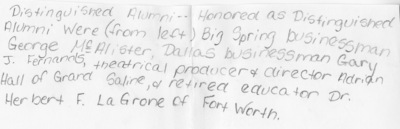 Distinguished Alumni -- Honored as Distinguished
Alumni Were (from left) Big Spring businessman
George McAlister, Dallas businessman Gary
J. Fernands, theatrical producer & director Adrian
Hall of Grand Saline, & retired educator Dr.
Herbert F. La Grone of Fort Worth.